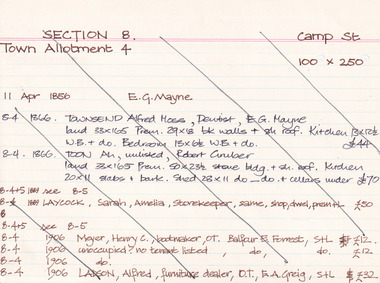 SECTION 8. Camp St
Town Allotment 4
100 x 250
11 Apr 1856 E.G. Mayne
8-4 1866. TOWNSEND Alfred Moss, Dentist, E.G. Mayne
land 33x165 Prem. 29x18 bk walls + sh. roof. Kitchen 13x12½
W.B. + do. Bedroom 15x6½ W.B + do. £44
8-4. 1866. TOON Ah, unlisted, Robert
land 33x165 Prem. 50x23½ stone bldg. + sh. roof. Kitchen
20x11 slabs + bark. Shed 28x11 do - do. + cellars under £70
8-4+5 see 8-5
8-4 1889 LAYCOCK, Sarah, Amelia, Storekeeper, same, shop, dwel, prem+L £50
8
8-4+5 see 8-5
8-4 1906 Meyer, Henry C., bootmaker, O.T. Balfour & Forrest, S+L £12.
8-4 1906 unoccupied / no tenant listed, do, do. £12.
8-4 1906 do.
8-4 1906 LARSON, Alfred, furniture dealer, O.T., E.A. Greig, S+L £32.